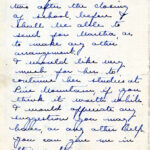 was after the closing
of school, before I
shall be able to
send you Martha or
to make any other
arrangement.
I would like very
much for her to
continue her studies at
Pine Mountain, if you
think it worth while
I would appreciate any
suggestion you may
have, or any other help
you can give me in